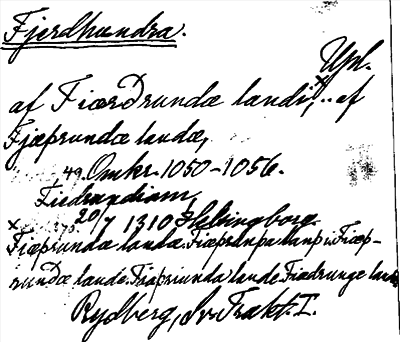 Fjerdhundra.
Upl.
af Fiærdrundæ landi,x.. af
Fjæþrundæ landæ,
49. Omkr. 1050-1056.
Fiedrundiam,
x 275. 20/7 1310 Helsingborg
Fiæþrundæ landæ. Fiæþ
rundæ lande. Fiæþrunda lande. Fiædrunge land
Rydberg, Sv. Trakt. I.